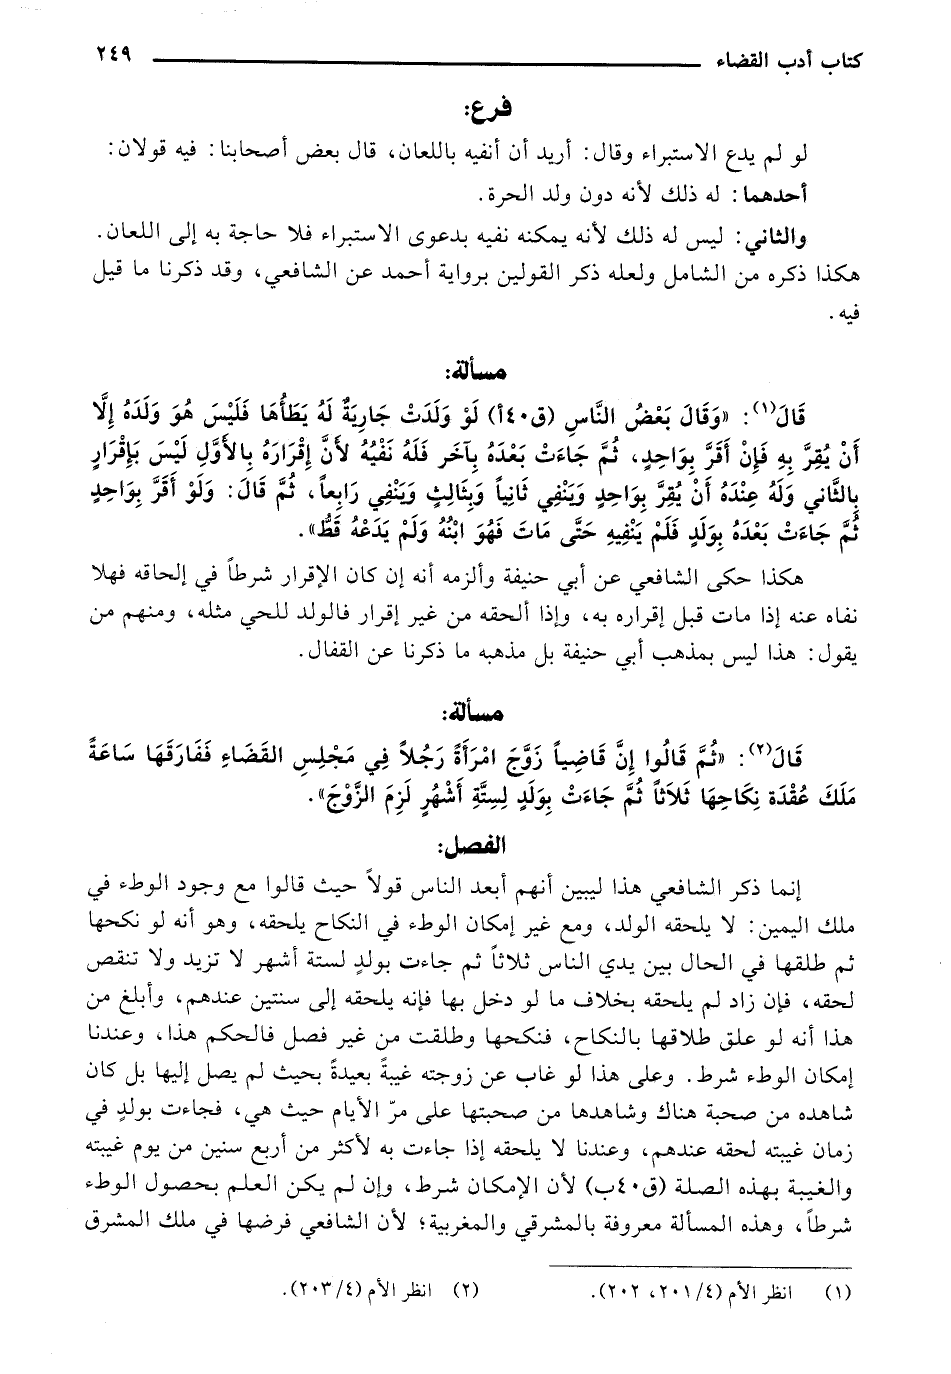 كتاب أدب القضاء ٢٤٩
فرع:
لو لم يدع الاستبراء وقال: أريد أن أنفيه باللعان، قال بعض أصحابنا: فيه قولان:
أحدهما: له ذلك لأنه دون ولد الحرة.
والثاني: ليس له ذلك لأنه يمكنه نفيه بدعوى الاستبراء فلا حاجة به إلى اللعان.
هكذا ذكره من الشامل ولعله ذكر القولين برواية أحمد عن الشافعي، وقد ذكرنا ما قيل
فيه.
مسألة:
قَالَ(١): «وَقَالَ بَعْضُ النَّاسِ (ق٤٠أ) لَوْ وَلَدَتْ جَارِيَةٌ لَهُ يَطَأُهَا فَلَيْسَ هُوَ وَلَدَهُ إِلَّا
أَنْ يُقِرَّ بِهِ فَإِنْ أَقَرَّ بِوَاحِدٍ، ثُمَّ جَاءَتْ بَعْدَهُ بِآخَر فَلَهُ نَفْيُهُ لأَنَّ إِقْرَارَهُ بِالأَوَّلِ لَيْسَ بَإِقْرَارٍ
بِالثَّانِي وَلَهُ عِنْدَهُ أَنْ يُقِرَّ بِوَاحِدٍ وَيَنْفِي ثَانِياً وَبِثَالِثٍ وَيَنْفِي رَابِعاً، ثُمَّ قَالَ: وَلَوْ أَقَرَّ بِوَاحِدٍ
ثُمَّ جَاءَتْ بَعْدَهُ بِوَلَدٍ فَلَمْ يَنْفِيهِ حَتَّى مَاتَ فَهُوَ ابْنُهُ وَلَمْ يَدَعْهُ قَطُّ».
هكذا حكى الشافعي عن أبي حنيفة وألزمه أنه إن كان الإقرار شرطاً في إلحاقه فهلا
نفاه عنه إذا مات قبل إقراره به، وإذا ألحقه من غير إقرار فالولد للحي مثله، ومنهم من
يقول: هذا ليس بمذهب أبي حنيفة بل مذهبه ما ذكرنا عن القفال.
مسألة:
قَالَ(٢): «ثُمَّ قَالُوا إِنَّ قَاضِياً زَوَّجَ امْرَأَةً رَجُلاً فِي مَجْلِسِ القَضَاءِ فَفَارَقَهَا سَاعَةً
مَلَكَ عُقْدَة نِكَاحِهَا ثَلَاثاً ثُمَّ جَاءَتْ بِوَلَدٍ لِسِتَّةِ أَشْهُرٍ لَزِمَ الزَّوْجَ».
الفصل:
إنما ذكر الشافعي هذا ليبين أنهم أبعد الناس قولاً حيث قالوا مع وجود الوطء في
ملك اليمين: لا يلحقه الولد، ومع غير إمكان الوطء في النكاح يلحقه، وهو أنه لو نكحها
ثم طلقها في الحال بين يدي الناس ثلاثاً ثم جاءت بولدٍ لستة أشهر لا تزيد ولا تنقص
لحقه، فإن زاد لم يلحقه بخلاف ما لو دخل بها فإنه يلحقه إلى سنتين عندهم، وأبلغ من
هذا أنه لو علق طلاقها بالنكاح، فنكحها وطلقت من غير فصل فالحكم هذا، وعندنا
إمكان الوطء شرط. وعلى هذا لو غاب عن زوجته غيبةً بعيدةً بحيث لم يصل إليها بل كان
شاهده من صحبة هناك وشاهدها من صحبتها على مرّ الأيام حيث هي، فجاءت بولدٍ في
زمان غيبته لحقه عندهم، وعندنا لا يلحقه إذا جاءت به لأكثر من أربع سنين من يوم غيبته
والغيبة بهذه الصلة (ق٤٠ب) لأن الإمكان شرط، وإن لم يكن العلم بحصول الوطء
شرطاً، وهذه المسألة معروفة بالمشرقي والمغربية؛ لأن الشافعي فرضها في ملك المشرق
(١) انظر الأم (٤/ ٢٠١، ٢٠٢). (٢) انظر الأم (٤/ ٢٠٣).